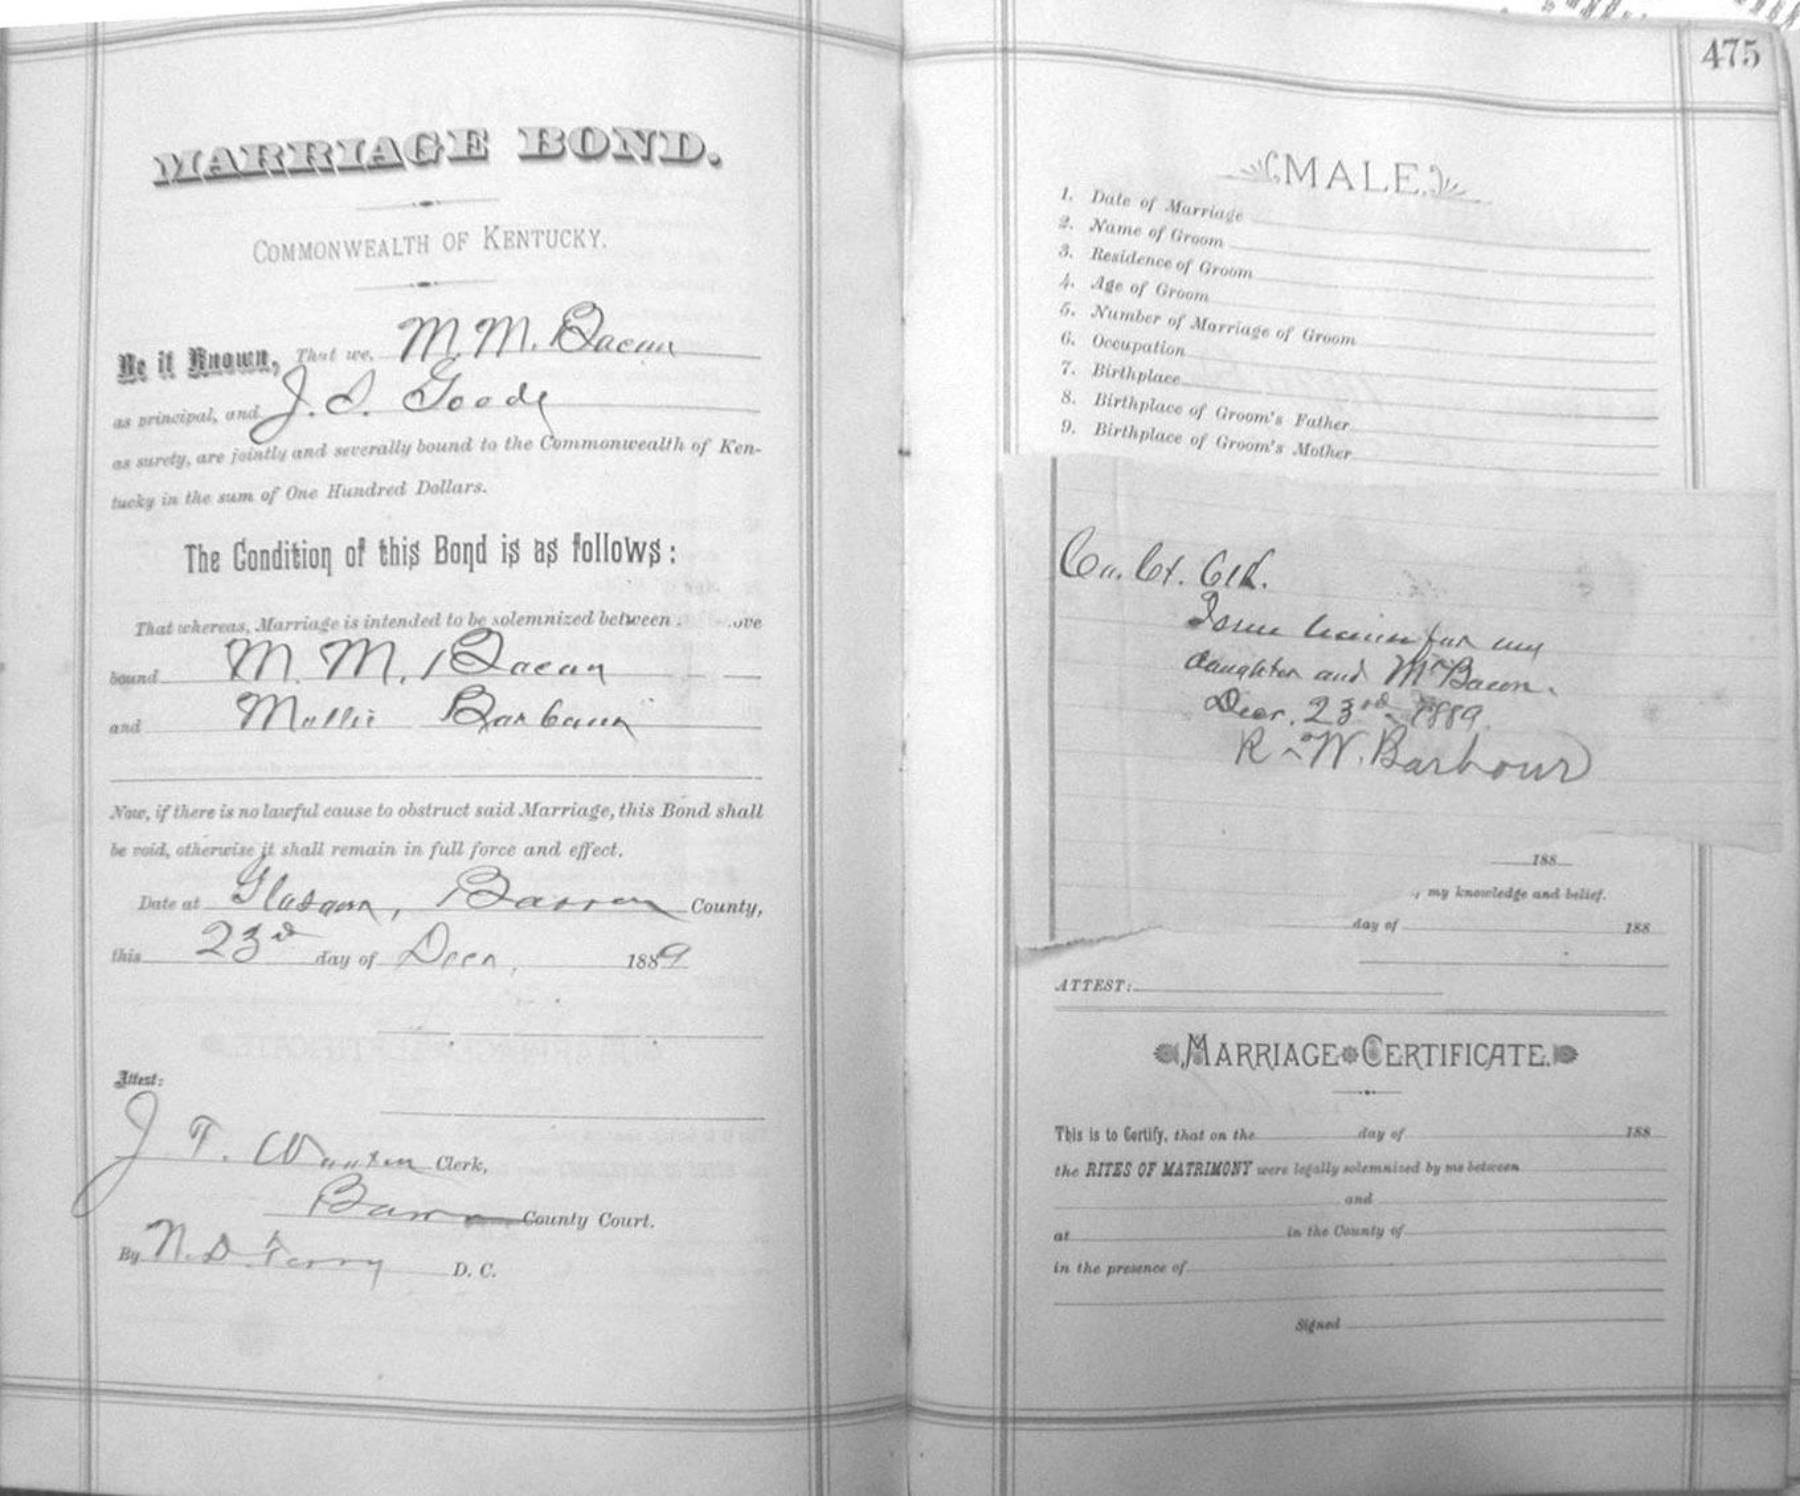 MARRIAGE BOND.
COMMONWEALTH OF KENTUCKY.
Be it Known, That we, M. M. Bacon
as principal, and J. S. Goode
as surety, are jointly and severally bound to the Commonwealth of Ken-
tucky in the sum of One Hundred Dollars.
The Condition of this Bond is as follows:
That whereas, Marriage is intended to be solemnized between ove
bound M. M. Bacon
and Mollie Barbour
Now, if there is no lawful cause to obstruct said Marriage, this Bond shall
be void, otherwise it shall remain in full force and effect.
Date at Glasgow, Barren County,
this 23rd day of Decr, 1889
Attest:
J. T. Clerk,
Barren County Court.
By N. D. Terry D. C.
475
MALE.
1. Date of Marriage
2. Name of Groom
3. Residence of Groom
4. Age of Groom
5. Number of Marriage of Groom
6. Occupation
7. Birthplace
8. Birthplace of Groom's Father
9. Birthplace of Groom's Mother
Co. Ct. Clk.
Issue for my
daughter and Mr Bacon.
Decr. 23rd 1889
R. W. Barbour
188
, my knowledge and belief.
day of 188
ATTEST:
MARRIAGE CERTIFICATE.
This is to Certify, that on the day of 188
the RITES OF MATRIMONY were legally solemnized by me between
and
at in the County of
in the presence of
Signed